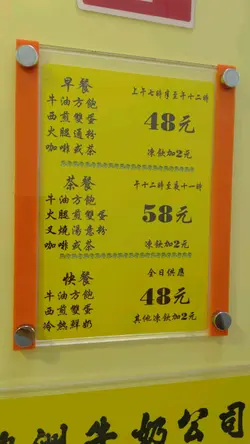 早餐
上午七時半至午十二時
牛油方飽
西煎雙蛋
火腿通粉
咖啡或茶
48元
凍飲加2元
茶餐
午十二時至夜十一時
牛油方飽
火腿煎雙蛋
叉燒湯意粉
咖啡或茶
58元
凍飲加2元
快餐
全日供應
牛油方飽
西煎雙蛋
冷熱鮮奶
48元
其他凍飲加2元
洲牛奶公司